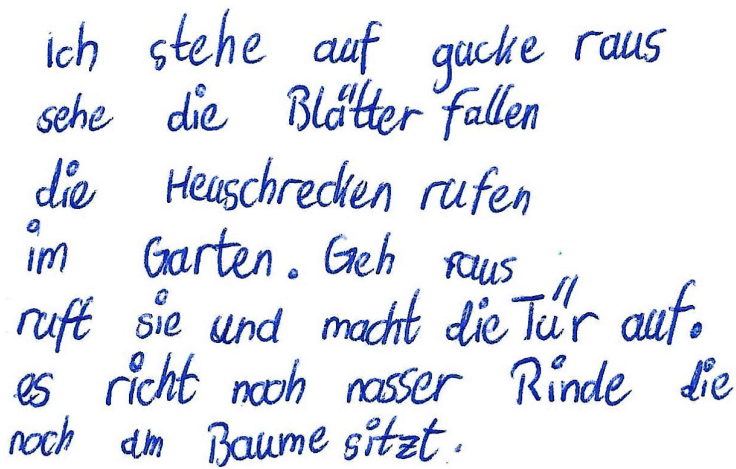 ich stehe auf gucke raus
sehe die Blätter fallen
die Heuschrecken rufen
im Garten. Geh raus
ruft sie und macht die Tür auf.
es richt nach nasser Rinde die
noch am Baume sitzt.